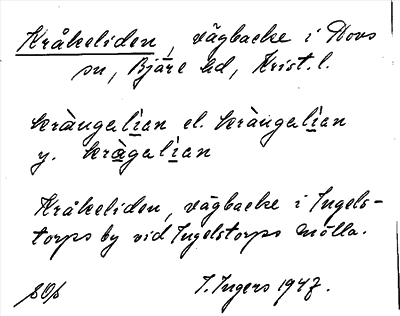 Kråkeliden, vägbacke i Hovs
sn, Bjäre hd, Krist. l.
kràngalian el. kràngalian
y. kràgalian
Kråkeliden, vägbacke i Ingels-
torps by vid Ingelstorps mölla.
I. Ingers 1947.